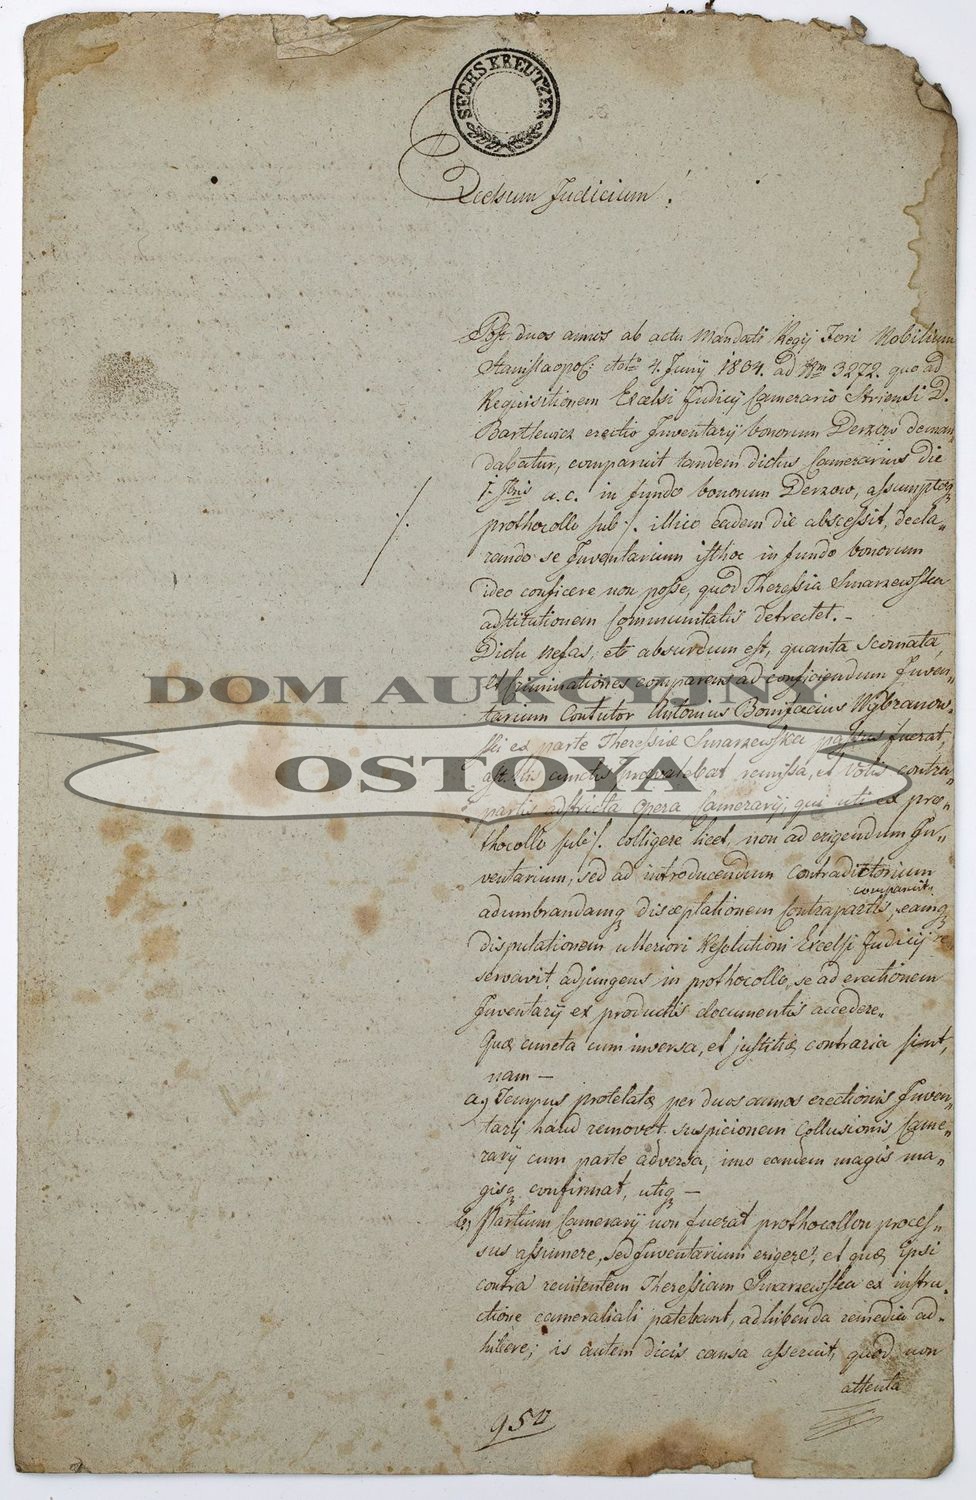 SECHS KREUTZER
Excelsum Judicium!
Post duos annos ab actu Mandati Regij Fori Nobilium
Stanislaopol: dto 4. Junij 1804. ad Nrm 3272. quo ad
Requisitionem Excelsi Judicij Camerario Striensi D.
Bartlewicz erectio Inventarij bonorum Derzow deman„
dabatur, comparuit tandem dictus Camerarius die
a. c. in fundo bonorum Derzow, assumptoq
prothocollo sub ·/. illico eadem die abscessit, decla„
rando se Inventarium isthoc in fundo bonorum
ideo conficere non posse, quod Theressia Smarzewska
adstitutionem Communitatis detrectet. –
Dictu nefas, et absurdum est, quanta scomata,
et criminationes comparens ad conficiendum Inven„
tarium Contutor Antonius Bonifacius Wybranow„
ski ex parte Theressiæ Smarzewska passus fuerat,
DOM AUKCYJNY
OSTOYA
ast his cunctis remissa, et votis contra„
partis adstricta opera Camerarij, qui uti ex pro„
thocollo sub ·/. colligere licet, non ad erigendum In„
ventarium, sed ad introducendum contradictorium
comparuit,
adumbrandamq disceptationem Contrapartis, eamq
disputationem ulteriori Resolutioni Excelsi Judicij re
servavit, adjungens in prothocollo, se ad erectionem
Inventarij ex productis documentis accedere.
Quæ cuncta cum inversa, et justitiæ contraria sint,
nam —
a, Tempus protelatæ per duos annos erectionis Inven„
tarij haud removet suspicionem Collusionis Came„
rarij cum parte adversa, imo eandem magis ma„
gisq confirmat, utiq —
b, Partium Camerarij non fuerat prothocollon proces„
sus assumere, sed Inventarium erigere, et quæ ipsi
contra renitentem Theressiam Smarzewska ex instru„
ctione cameraliali patebant, adhibenda remedia ad„
hibere; is autem dicis causa asseruit, quod non
attenta
95